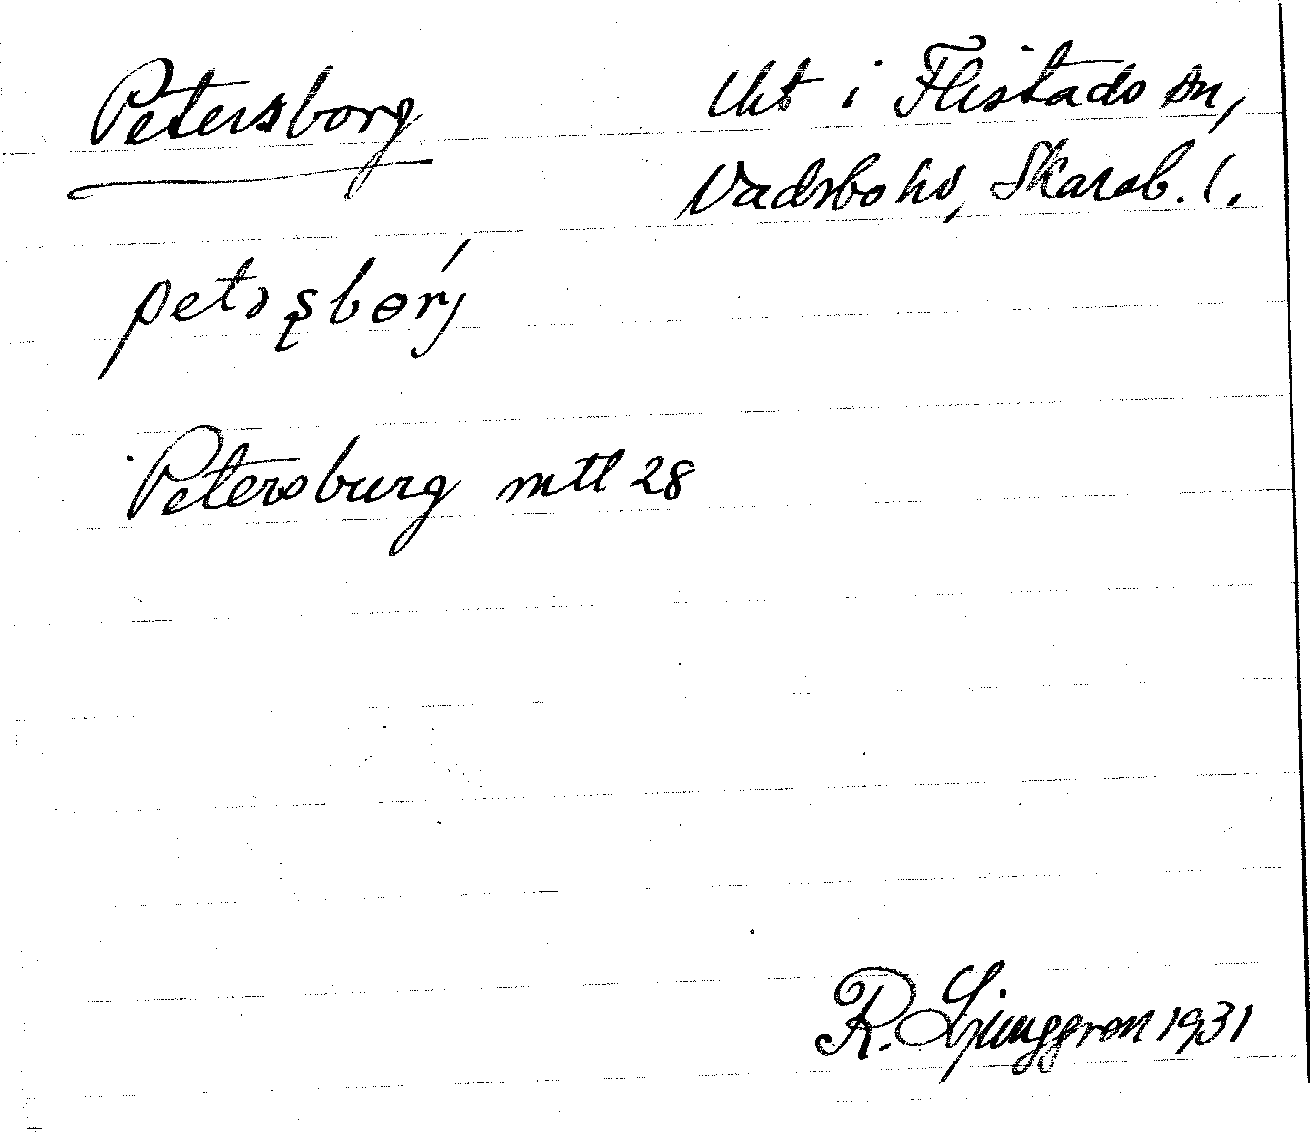 Petersborg
Uts i Flistads sn,
Vadsbo hd, Skarab. l.
petɔʂborj
Petersburg mtl 28
R. Ljunggren 1931